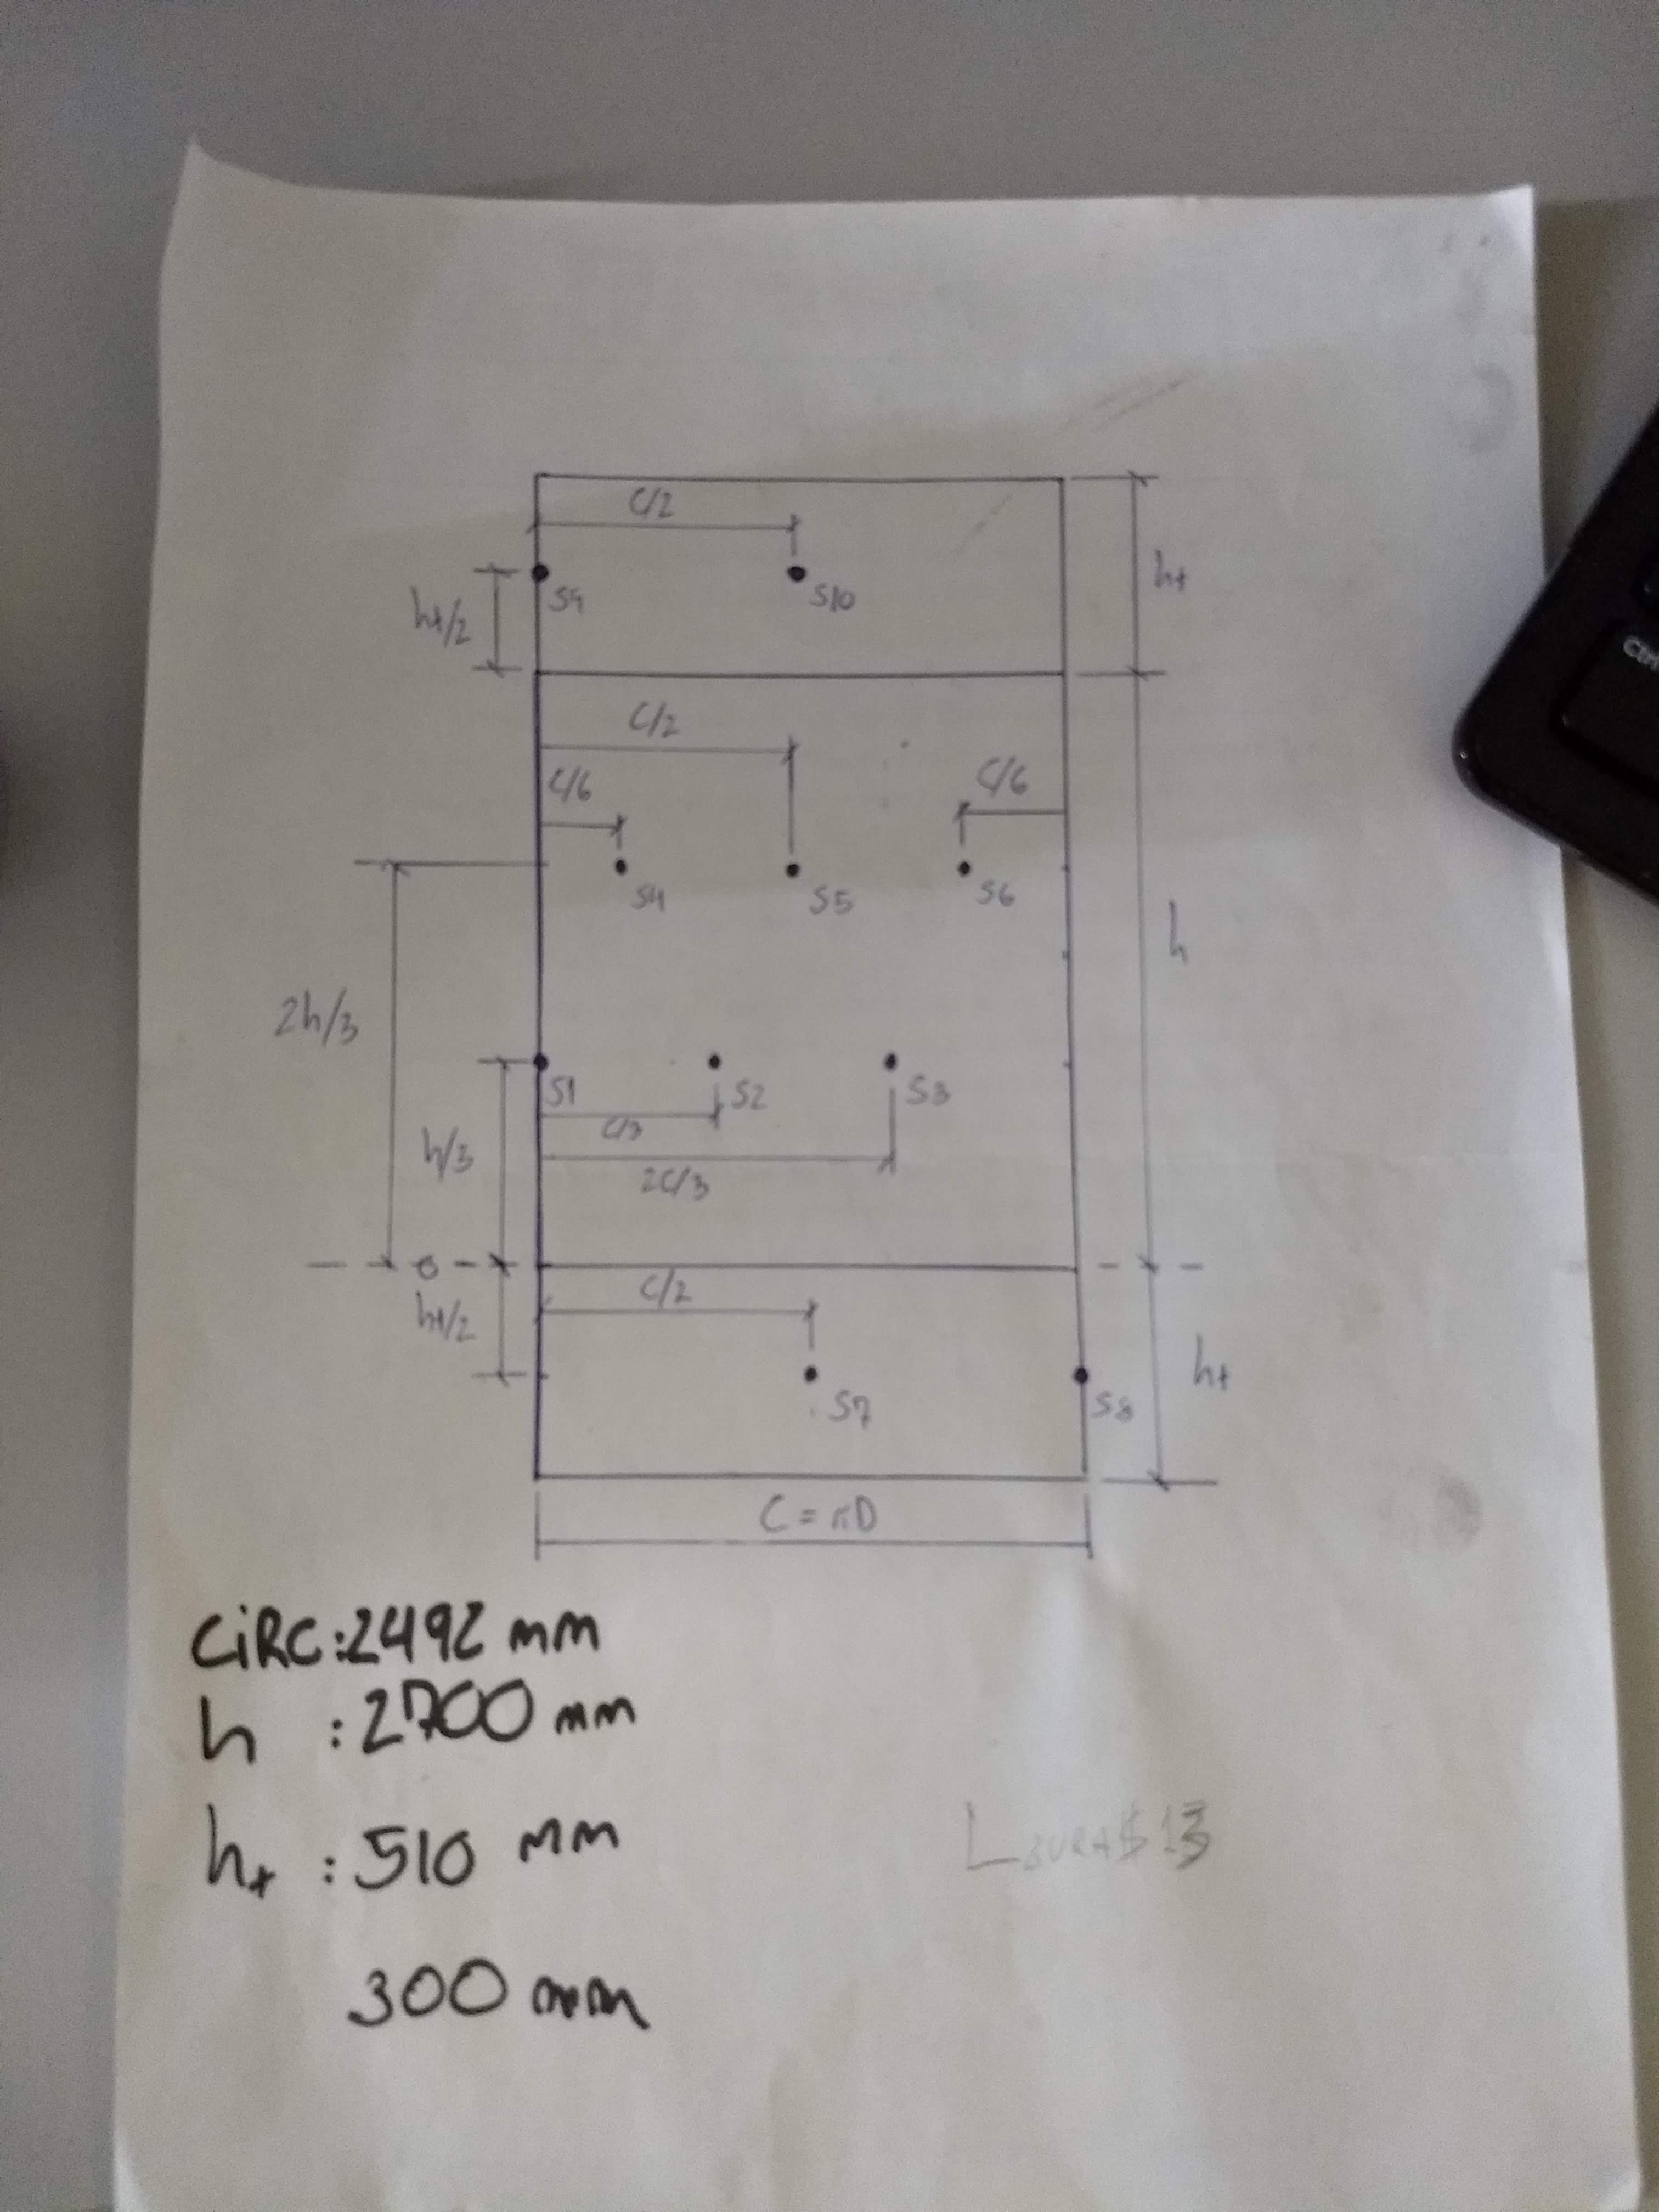 C/2
h+
S9
S10
h+/2
C/2
C/6
C/6
S4
S5
S6
h
2h/3
S1
S2
S3
C/3
h/3
2C/3
0
C/2
h+/2
S7
S8
h+
C = πD
CiRC:2492 mm
h : 2700 mm
h+ : 510 mm
300 mm